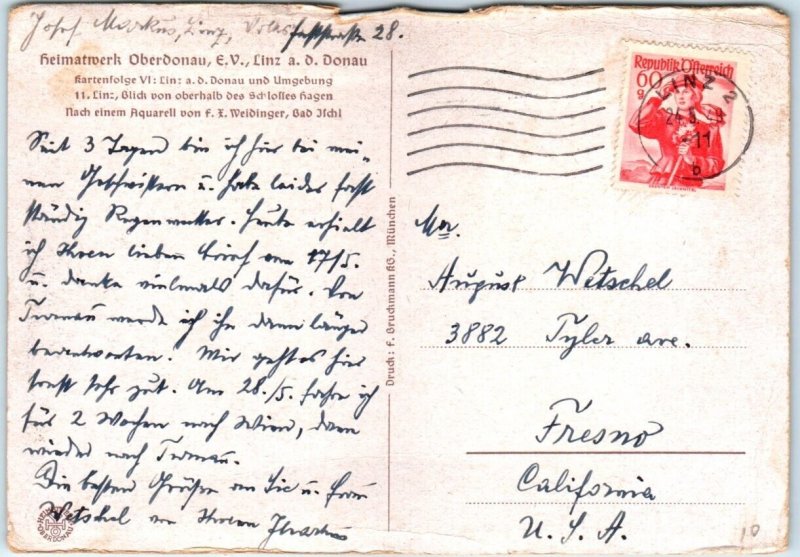 Josef Markus, Linz, Volksfeststraße 28.
Heimatwerk Oberdonau, E.V., Linz a. d. Donau
Kartenfolge VI: Linz a. d. Donau und Umgebung
11. Linz, Blick von oberhalb des Schlosses Hagen
Nach einem Aquarell von F. X. Weidinger, Bad Ischl
Seit 3 Tagen bin ich hier bei mei-
nen Geschwistern u. habe leider fast
ständig Regenwetter. Heute erhielt
ich Ihren lieben Brief vom 17/5.
u. danke vielmals dafür. Von
Turnau werde ich ihn dann länger
beantworten. Mir geht es hier
sonst sehr gut. Am 28./5. fahre ich
für 2 Wochen nach Wien, dann
wieder nach Turnau.
Die besten Grüße an Sie u. Frau
Wetschel von Ihrem JMarkus
HEIMATWERK OBERDONAU
Druck: F. Bruckmann KG., München
Republik Österreich
60
g
LINZ 2
11
b
Mr.
August Wetschel
3882 Tyler ave.
Fresno
California
U. S. A.
10